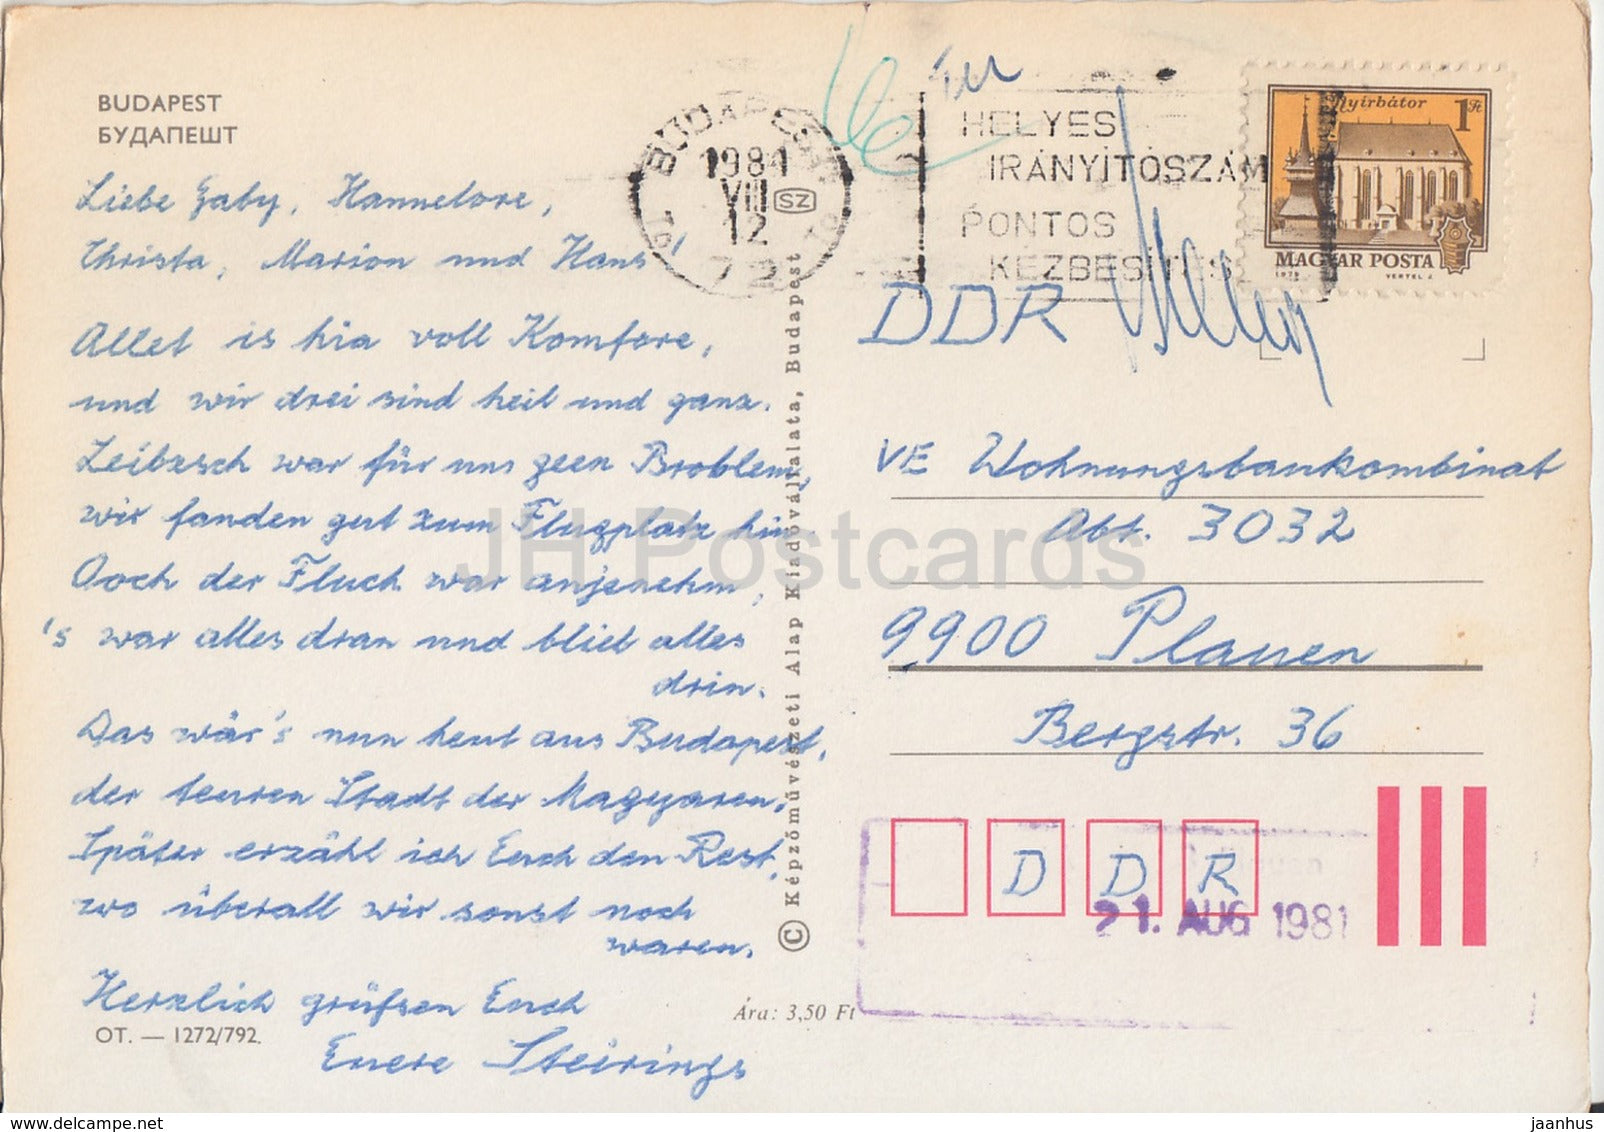 BUDAPEST
БУДАПЕШТ
Liebe Gaby, Hannelore,
Christa, Marion und Hans!
Allet is hia voll Komfore,
und wir drei sind heil und ganz.
Leibzsch war für uns geen Broblem,
wir fanden gut zum Flugplatz hin
Ooch der Fluch war anjenehm,
's war alles dran und blieb alles
drin.
Das wär's nun heut aus Budapest,
der teuren Stadt der Magyaren.
Später erzähl ich Euch den Rest,
wo überall wir sonst noch
waren.
Herzlich grüßen Euch
OT. — 1272/792.
Euere Steirings
Ára: 3,50 Ft
© Képzőművészeti Alap Kiadóvállalata, Budapest
BUDAPEST
1981
VIII
12
SZ
72
HELYES
IRÁNYÍTÓSZÁM
PONTOS
KÉZBESÍTÉS
Nyírbátor
1 Ft
MAGYAR POSTA
1973
VERTEL J.
DDR
VE Wohnungsbaukombinat
Abt. 3032
9900 Plauen
Bergstr. 36
D D R
21. AUG 1981
JH Postcards
www.delcampe.net
jaanhus